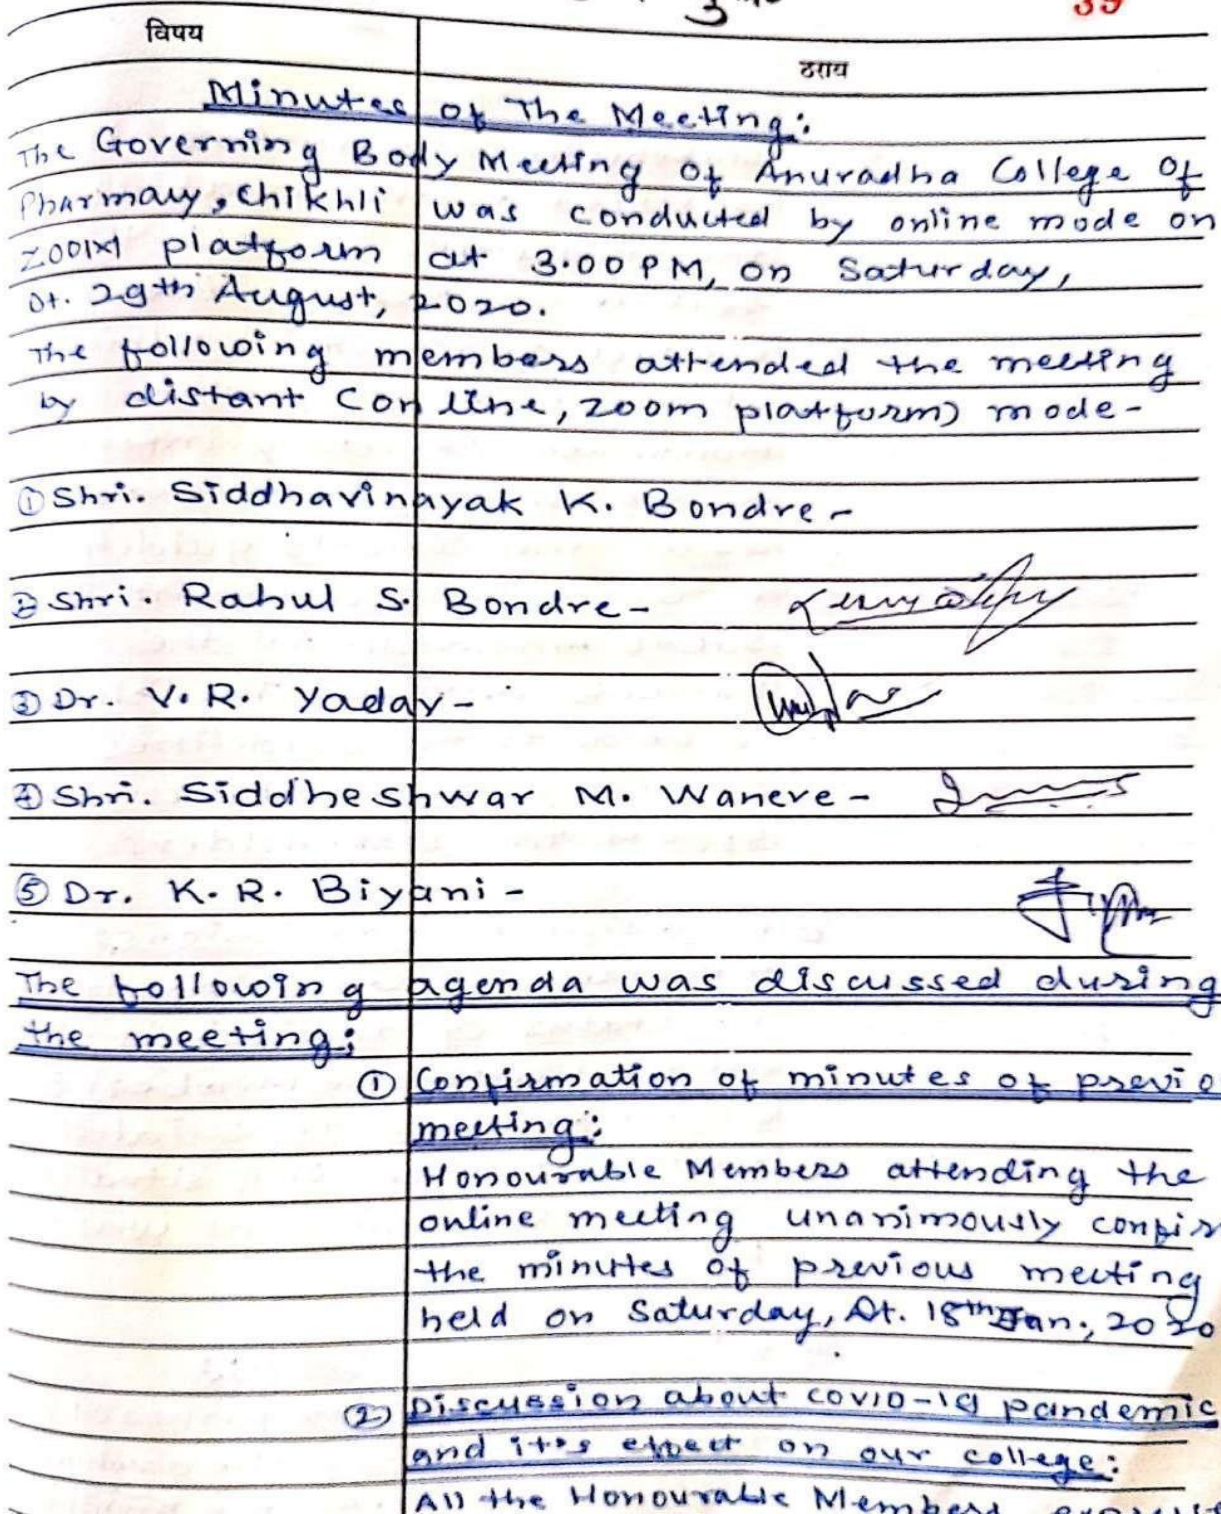 39
विषय
ठराव
Minutes of The Meeting:
The Governing Body Meeting Of Anuradha College Of
Pharmacy, Chikhli was conducted by online mode on
zoom platform at 3.00 PM, on Saturday,
Dt. 29th August, 2020.
The following members attended the meeting
by distant Con line, zoom platform) mode-
① Shri. Siddhavinayak K. Bondre-
② Shri. Rahul S. Bondre-
③ Dr. V. R. Yadav-
④ Shri. Siddheshwar M. Wanere-
⑤ Dr. K. R. Biyani-
The following agenda was discussed during
the meeting:
① Confirmation of minutes of previo
meeting:
Honourable Members attending the
online meeting unanimously confir
the minutes of previous meeting
held on Saturday, Dt. 18th Jan., 2020
② Discussion about COVID-19 pandemic
and it's effect on our college:
All the Honourable Members